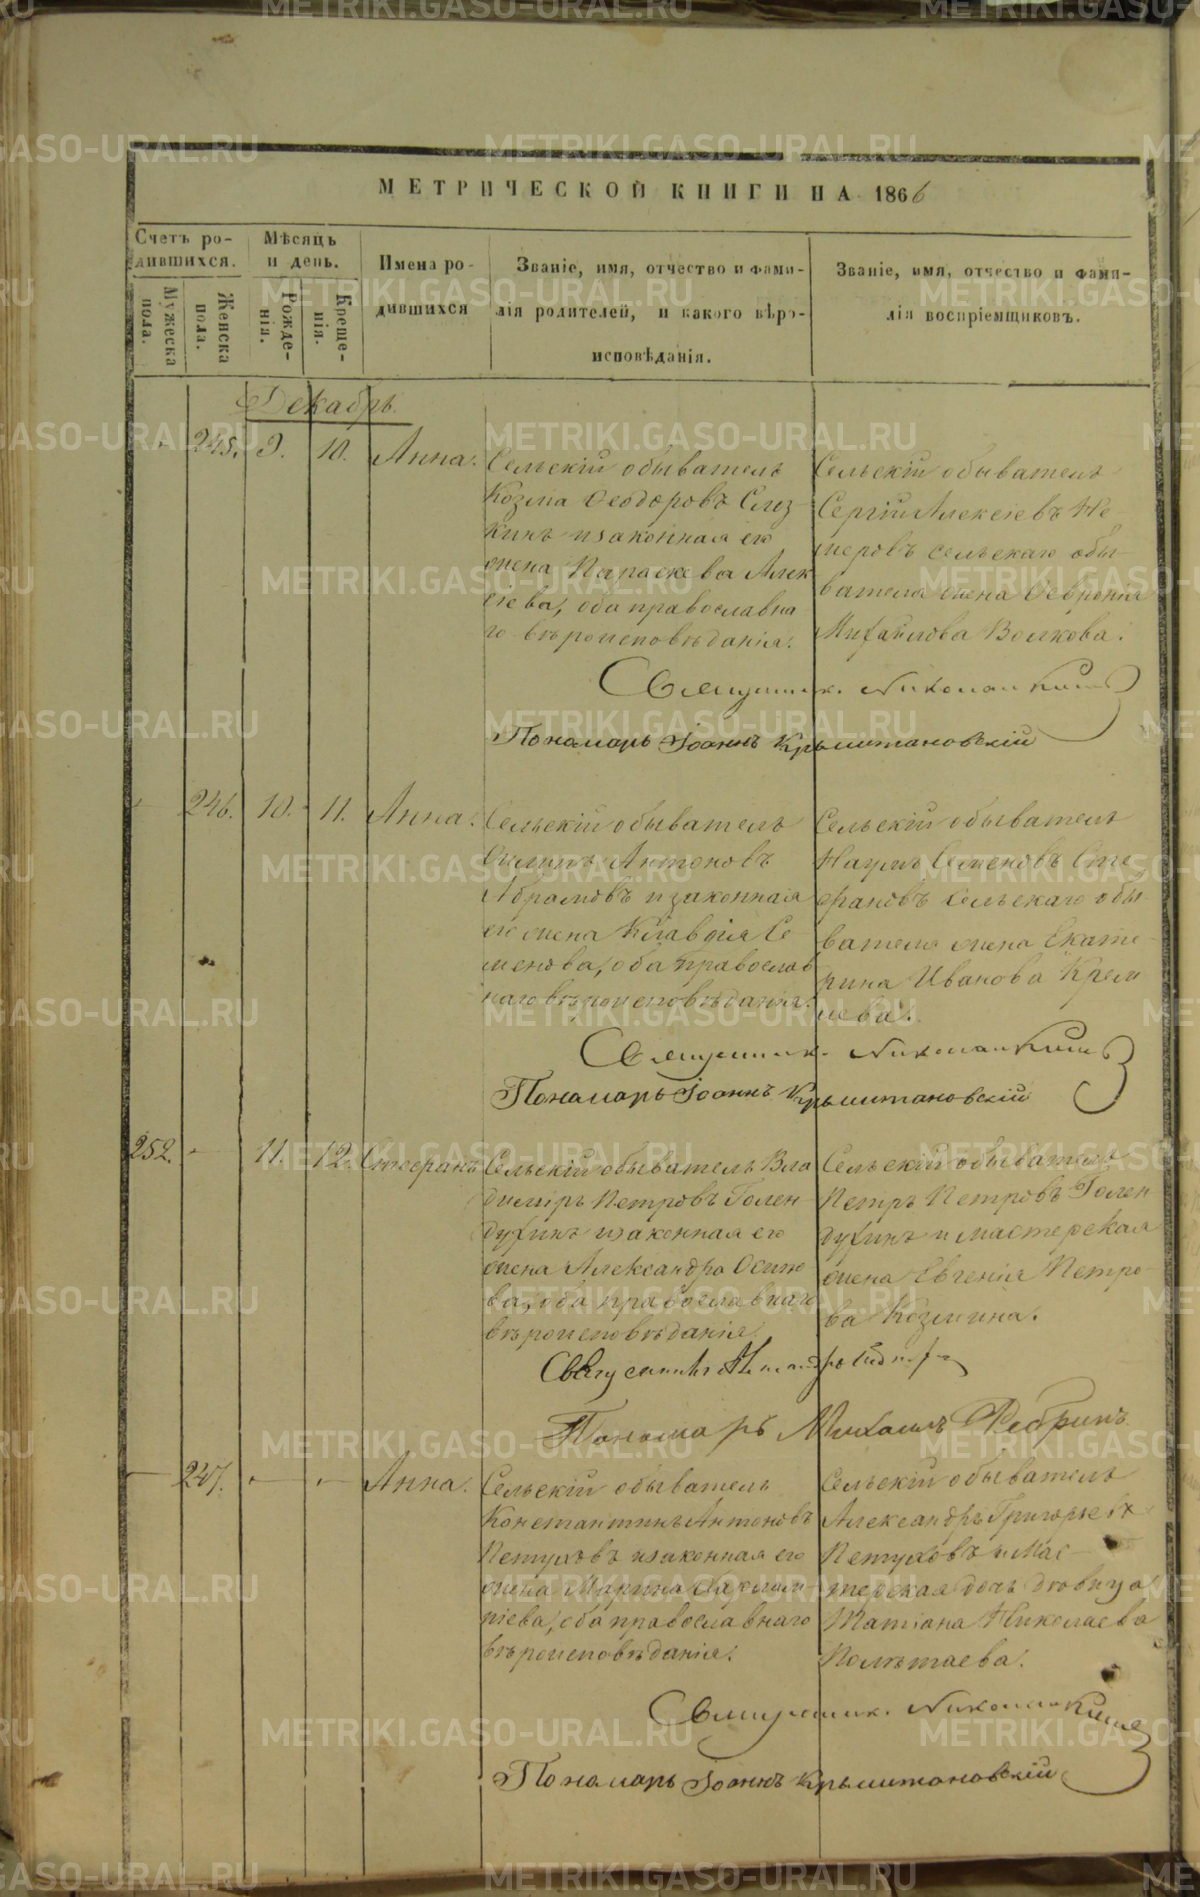 МЕТРИЧЕСКОЙ КНИГИ НА 1866
Счетъ ро-
дившихся.
Мужеска
пола.
Женска
пола.
Мѣсяцъ
и день.
Рожде-
нія.
Креще-
нія.
Имена ро-
дившихся
Званіе, имя, отчество и фами-
лія родителей, и какого вѣро-
исповѣданія.
Званіе, имя, отчество и фами-
лія воспріемщиковъ.
Декабрь.
245. 9. 10. Анна.
Сельскій обыватель
Козма Ѳеодоровъ
и законная его
жена Параскева Алек
сіева, оба православна
го вѣроисповѣданія.
Сельскій обыватель
Сергій Алексіевъ Не-
меровъ сельскаго обы-
вателя жена Ѳеvронія
Михайлова Волкова.
Священник. Николай
Пономарь Іоаннъ
246. 10. 11. Анна.
Сельскій обыватель
Антоновъ
Абрамовъ и законная
его жена Клавдія Се
менова, оба православ
наго вѣроисповѣданія.
Сельскій обыватель
Наумъ Семеновъ Сте
фановъ сельскаго обы
вателя жена Екате-
рина Иванова Крем
лева.
Священник. Николай
Пономарь Іоаннъ
252. - 11. 12. Стефанъ
Сельскій обыватель Вла
димiръ Петровъ Голен
духинъ и законная его
жена Александра Осипо
ва, оба православнаго
вѣроисповѣданія.
Сельскій обыватель
Петръ Петровъ Голен
духинъ и мастерская
жена Евгенія Петро-
ва Козмина.
Пономарь Михаилъ Ребринъ
247. - - Анна.
Сельскій обыватель
Константинъ Антоновъ
Петуховъ и законная его
жена Марина
оба православнаго
вѣроисповѣданія.
Сельскій обыватель
Александръ Григорьевъ
Петуховъ и Мас-
терская дочь дѣвица
Татіана Николаева
Полѣтаева.
Священник. Николай
Пономарь Іоаннъ
METRIKI.GASO-URAL.RU